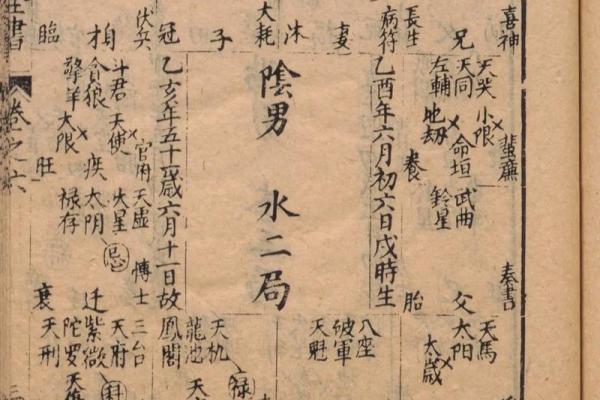 喜神
兄
長生
病符
妻
沐
大耗
子
冠
伏兵
臨
蜚廉
天哭 小限
天同 命垣 武曲
左輔 地劫 鈴星
養
奏書
父
胎
天馬
太阳
太歲
乙酉年六月初六日戌時生
陰男 水二局
乙亥年五十一歲六月十一日故
八座
破軍
天魁
天机 禄
龍池
鳳閣
官府 天虛 博士
斗君 天使 火星
貪狼 疾 太阴 忌
擎羊 大限 禄存
旺
三台
天府
迁 紫微
陀罗
衰 天刑
書 卷之六